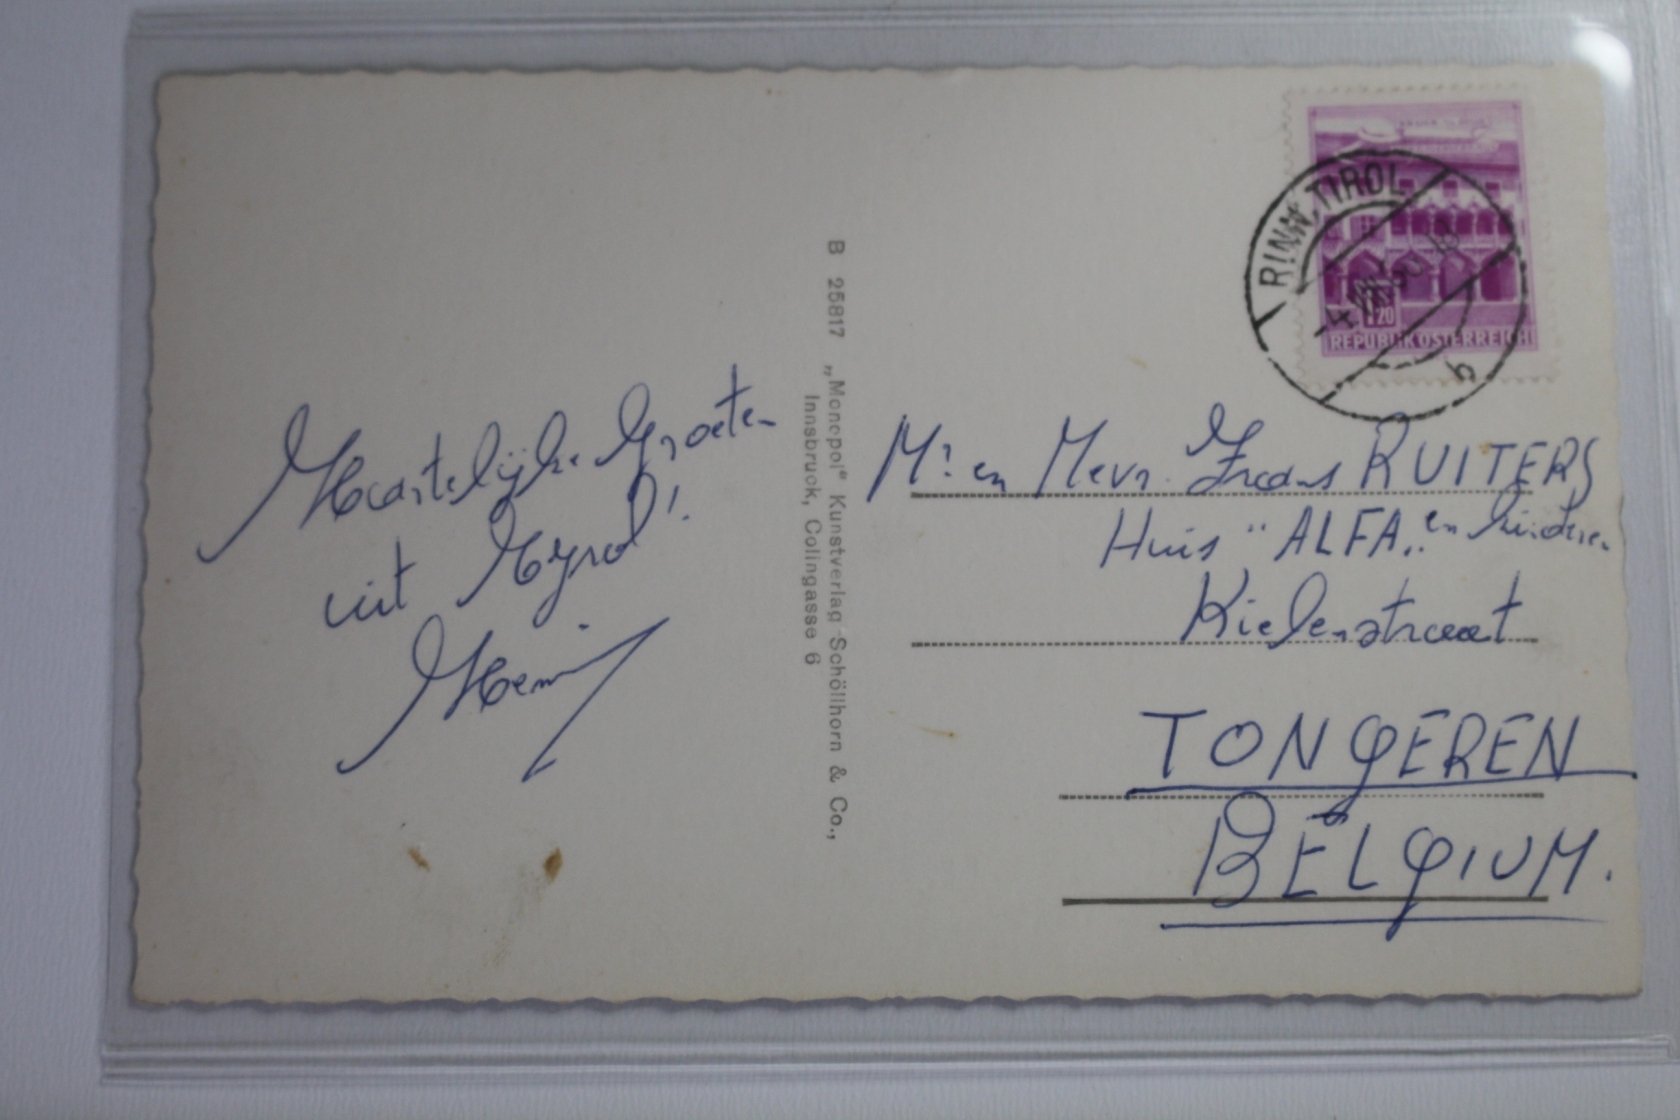 Hartelijke Groeten
uit Tyrol!
Henri
B 25817 „Monopol“ Kunstverlag Schöllhorn & Co.,
Innsbruck, Colingasse 6
RINN, TIROL
b
1.20
REPUBLIK ÖSTERREICH
Mr en Mevr. Frans RUITERS
Huis "ALFA" en kinderen
Kielenstraat
TONGEREN
BELGIUM.